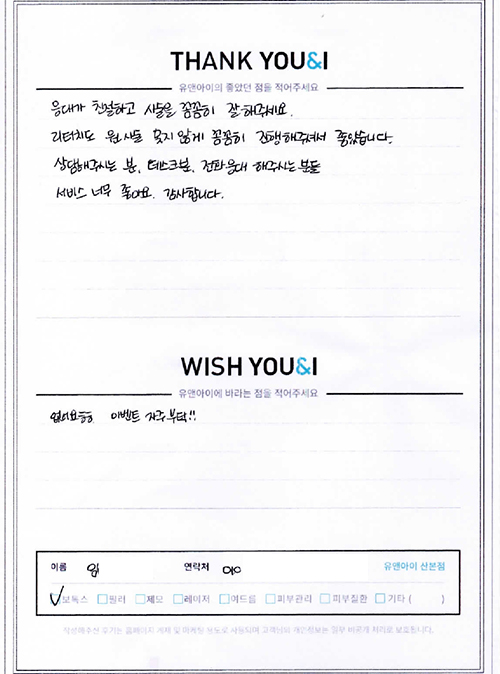 THANK YOU&I
유앤아이의 좋았던 점을 적어주세요
응대가 친절하고 시술을 꼼꼼히 잘해주세요.
리터치도 원시술 못지않게 꼼꼼히 진행해주셔서 좋았습니다.
상담해주시는 분, 데스크분, 전화응대 해주시는 분들
서비스 너무 좋아요. 감사합니다.
WISH YOU&I
유앤아이에 바라는 점을 적어주세요
없어요ㅎㅎ 이벤트 자주 부탁!!
이름 연락처 유앤아이 산본점
보톡스 필러 제모 레이저 여드름 피부관리 피부질환 기타 ( )
작성해주신 후기는 홈페이지 게재 및 마케팅 용도로 사용되며 고객님의 개인정보는 일부 비공개 처리로 보호됩니다.